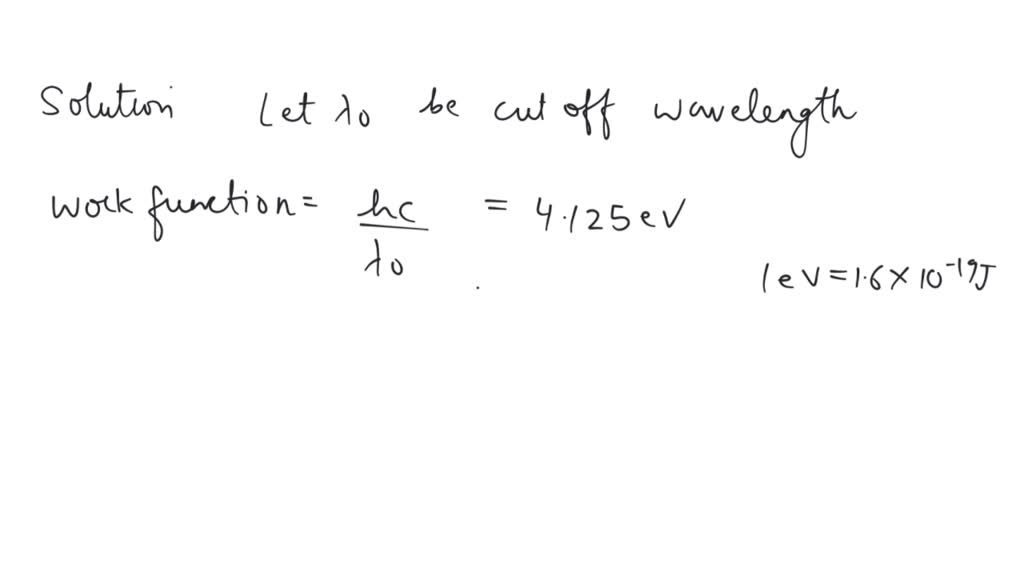 Solution Let λ0 be cut off wavelength
Work function = hc/λ0 = 4.125eV
1eV = 1.6 × 10^-19J